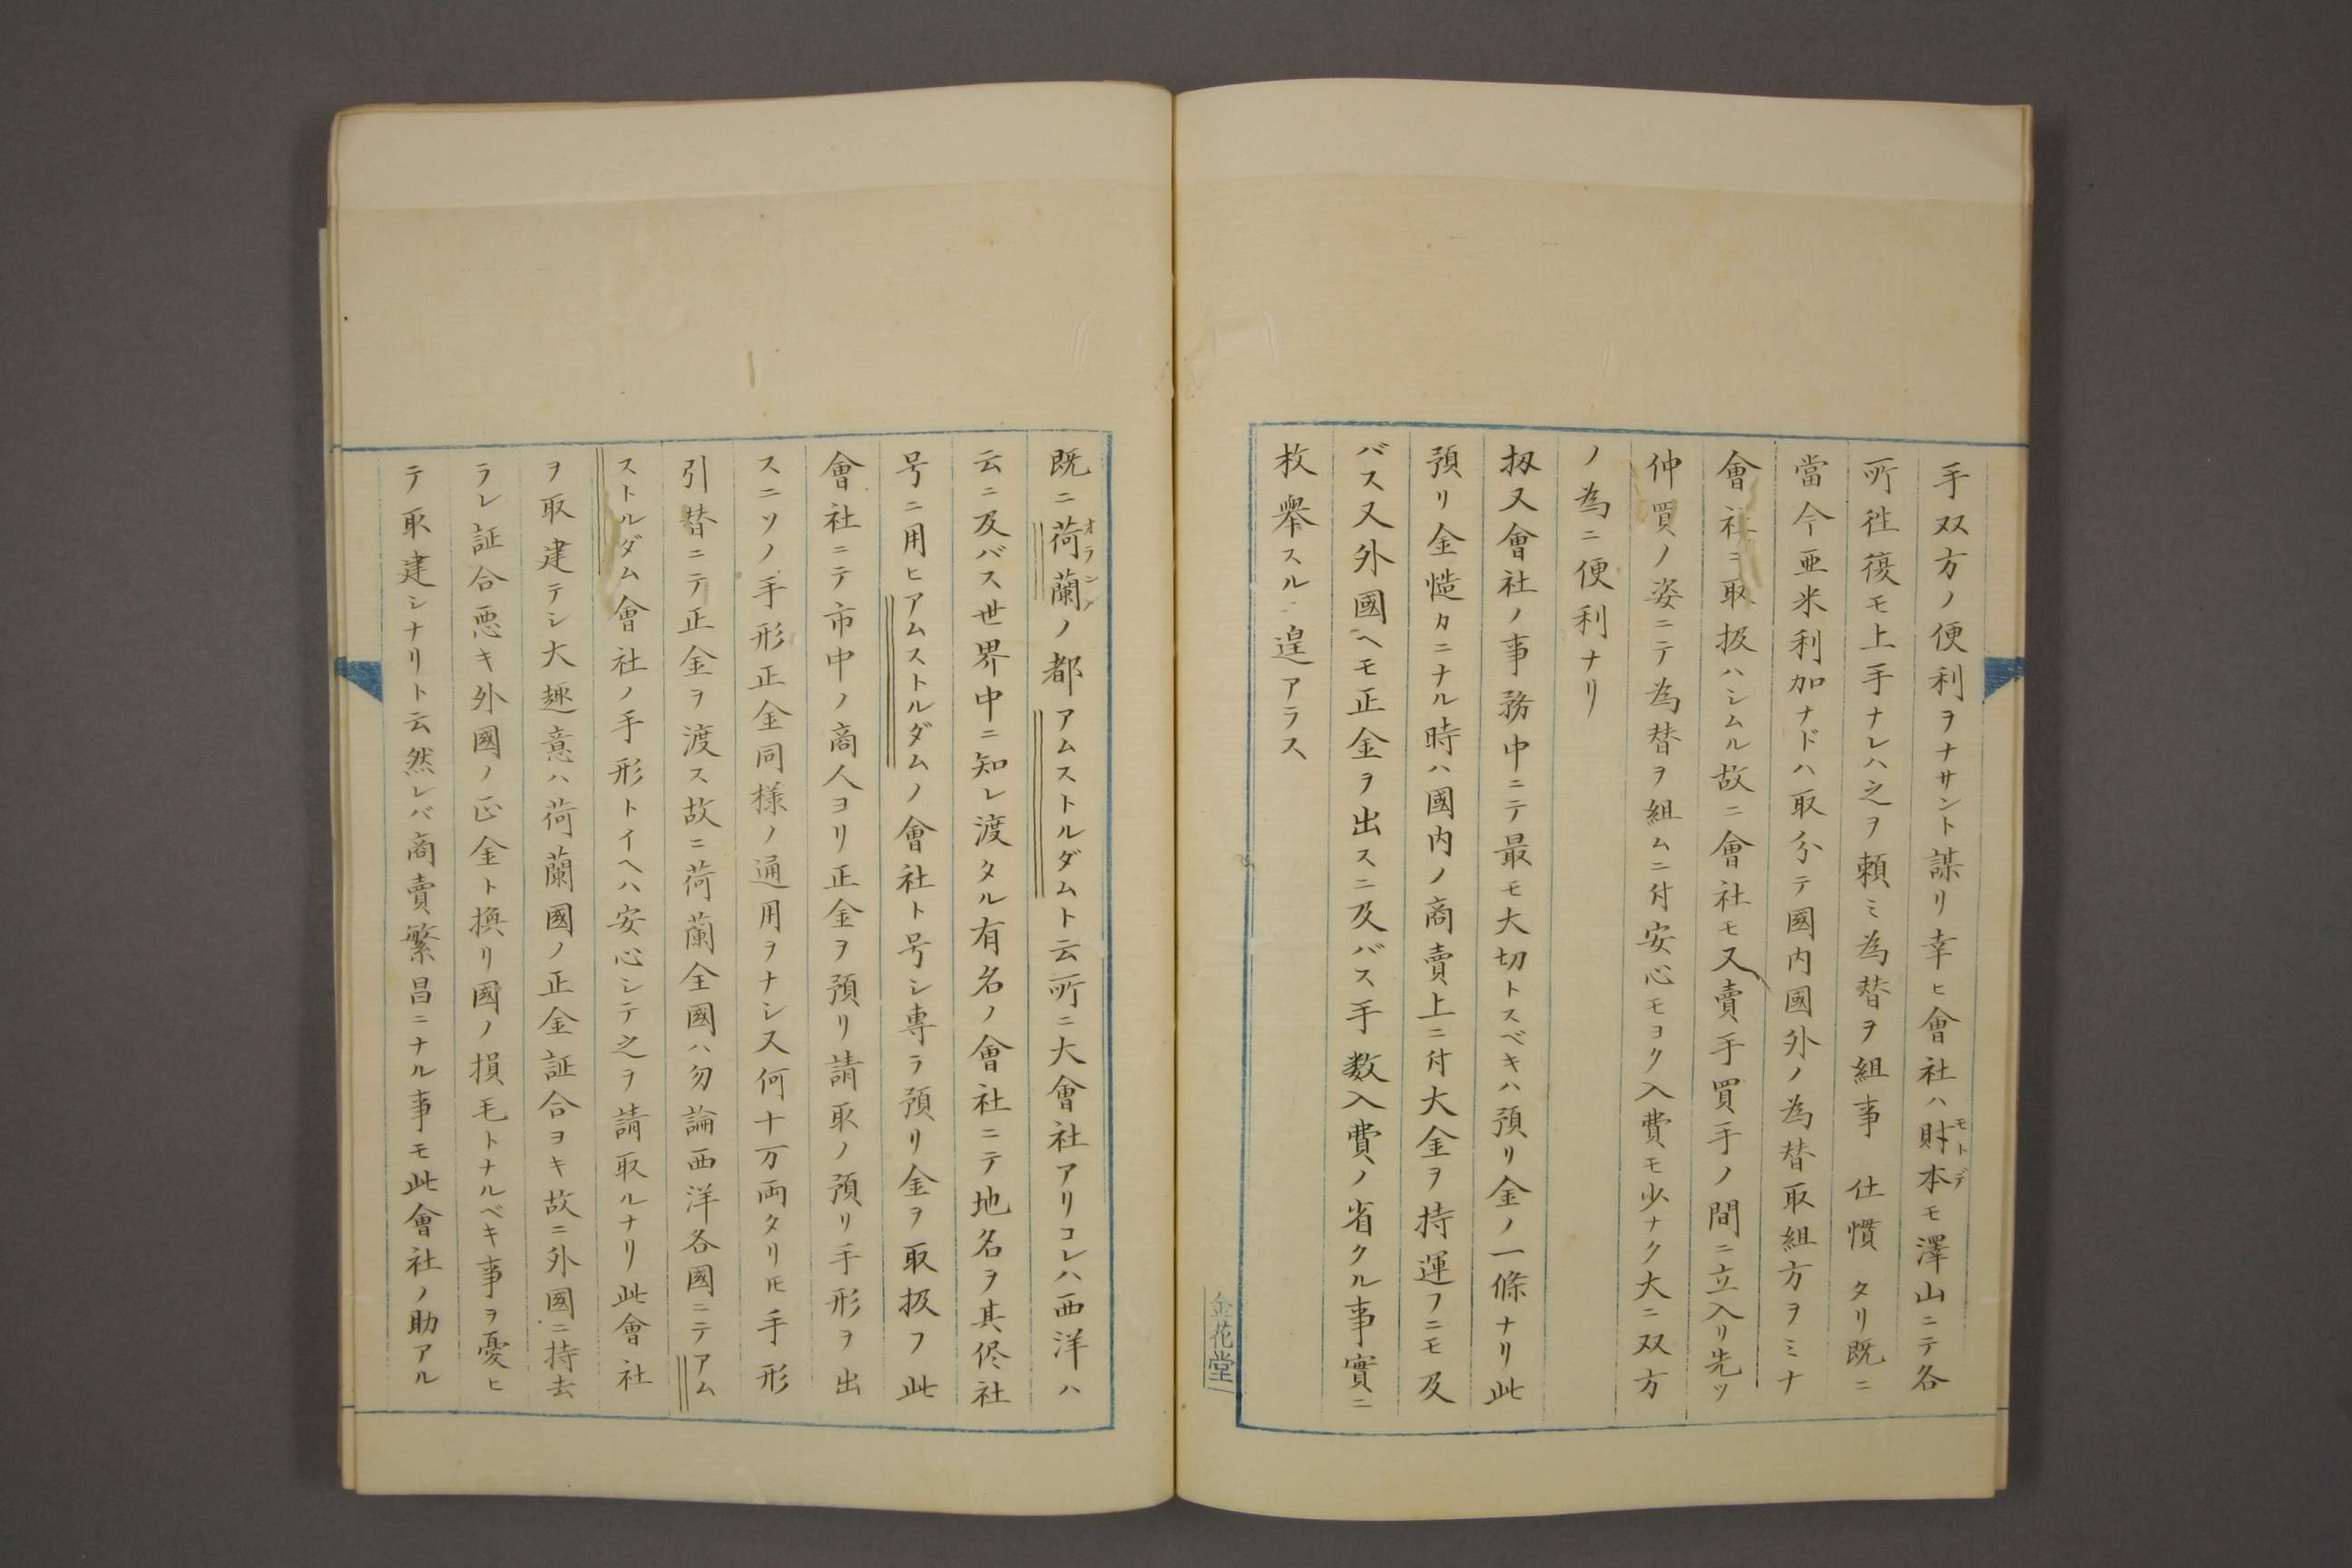 手双方ノ便利ヲナサント謀リ幸ヒ會社ハ財本モトデモ澤山ニテ各
所徃復モ上手ナレハ之ヲ頼ミ為替ヲ組事仕慣タリ既ニ
當今亜米利加ナドハ取分テ國内國外ノ為替取組方ヲミナ
會社ニ取扱ハシムル故ニ會社モ又賣手買手ノ間ニ立入リ先ツ
仲買ノ姿ニテ為替ヲ組ムニ付安心モヨク入費モ少ナク大ニ双方
ノ為ニ便利ナリ
扨又會社ノ事務中ニテ最モ大切トスベキハ預リ金ノ一條ナリ此
預リ金慥カニナル時ハ國内ノ商賣上ニ付大金ヲ持運フニモ及
バス又外國ヘモ正金ヲ出スニ及バス手数入費ノ省クル事實ニ
枚舉スル遑アラス
金花堂
既ニ荷蘭オランダノ都アムストルダムト云所ニ大會社アリコレハ西洋ハ
云ニ及バス世界中ニ知レ渡タル有名ノ會社ニテ地名ヲ其侭社
号ニ用ヒアムストルダムノ會社ト号シ専ラ預リ金ヲ取扱フ此
會社ニテ市中ノ商人ヨリ正金ヲ預リ請取ノ預リ手形ヲ出
スニソノ手形正金同様ノ通用ヲナシ又何十万両タリ𪜈手形
引替ニテ正金ヲ渡ス故ニ荷蘭全國ハ勿論西洋各國ニテアム
ストルダム會社ノ手形トイヘハ安心シテ之ヲ請取ルナリ此會社
ヲ取建テシ大趣意ハ荷蘭國ノ正金証合ヨキ故ニ外國ニ持去
ラレ証合悪キ外國ノ正金ト換リ國ノ損毛トナルベキ事ヲ憂ヒ
テ取建シナリト云然レバ商賣繁昌ニナル事モ此會社ノ助アル